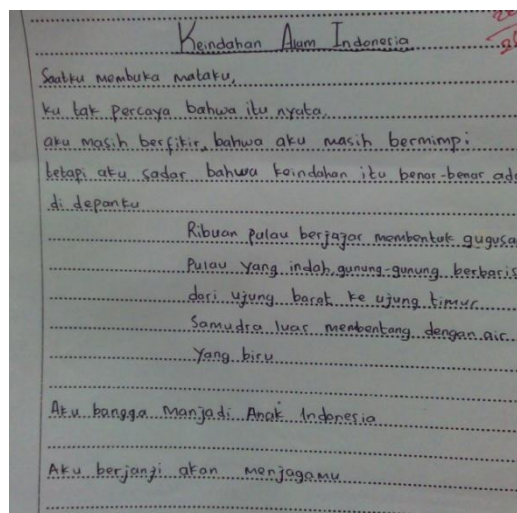 Keindahan Alam Indonesia
Saatku membuka mataku,
ku tak percaya bahwa itu nyata.
aku masih berfikir, bahwa aku masih bermimpi
tetapi aku sadar bahwa keindahan itu benar-benar ada
di depanku
Ribuan pulau berjajar membentuk gugusa
Pulau yang indah, gunung-gunung berbaris
dari ujung barat ke ujung timur
Samudra luas membentang dengan air
Yang biru
Aku bangga Manjadi Anak Indonesia
Aku berjanji akan menjagamu